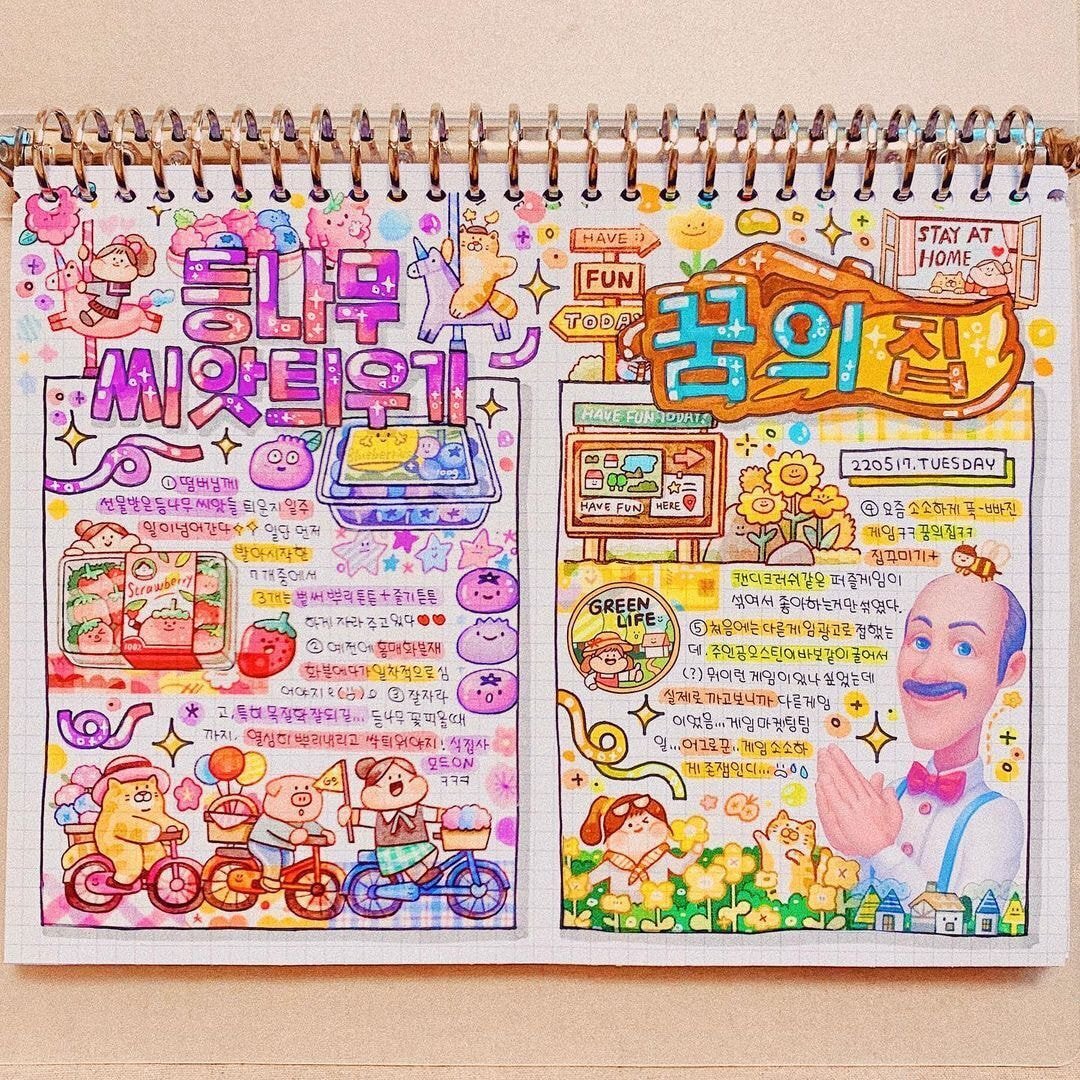 등나무
씨앗틔우기
Blueberries
100g
① 떰버님께
선물받은 등나무 씨앗들 틔운지 일주
일이 넘어간다 일단 먼저
발아시작한
7개중에서
3개는 벌써 뿌리튼튼+줄기튼튼
하게 자라주고있다♥♥
② 예전에 홍매화분재
화분에다가 일차적으로 심
어야지 ③ 잘자라
고, 특히 목질화 잘되길... 등나무 꽃피울때
까지, 열심히 뿌리내리고 싹틔워야지! 식집사
모드ON
ㅋㅋㅋ
Strawberry
HAVE :)
FUN
TODAY
STAY AT
HOME
꿈의 집
HAVE FUN TODAY
HAVE FUN
HERE
220517.TUESDAY
④ 요즘 소소하게 푹-빠진
게임ㅋㅋ 꿈의집ㅋㅋ
집꾸미기+
캔디크러쉬같은 퍼즐게임이
섞여서 좋아하는거만 섞였다.
GREEN
LIFE
⑤ 처음에는 다른게임광고로 접했는
데, 주인공오스틴이 바보같이 굴어서
(?) 뭐이런 게임이있나 싶었는데
실제로 까고보니까 다른게임
이었음... 게임마켓팅팀
일...어그로꾼..게임소소하
게 존잼인디...